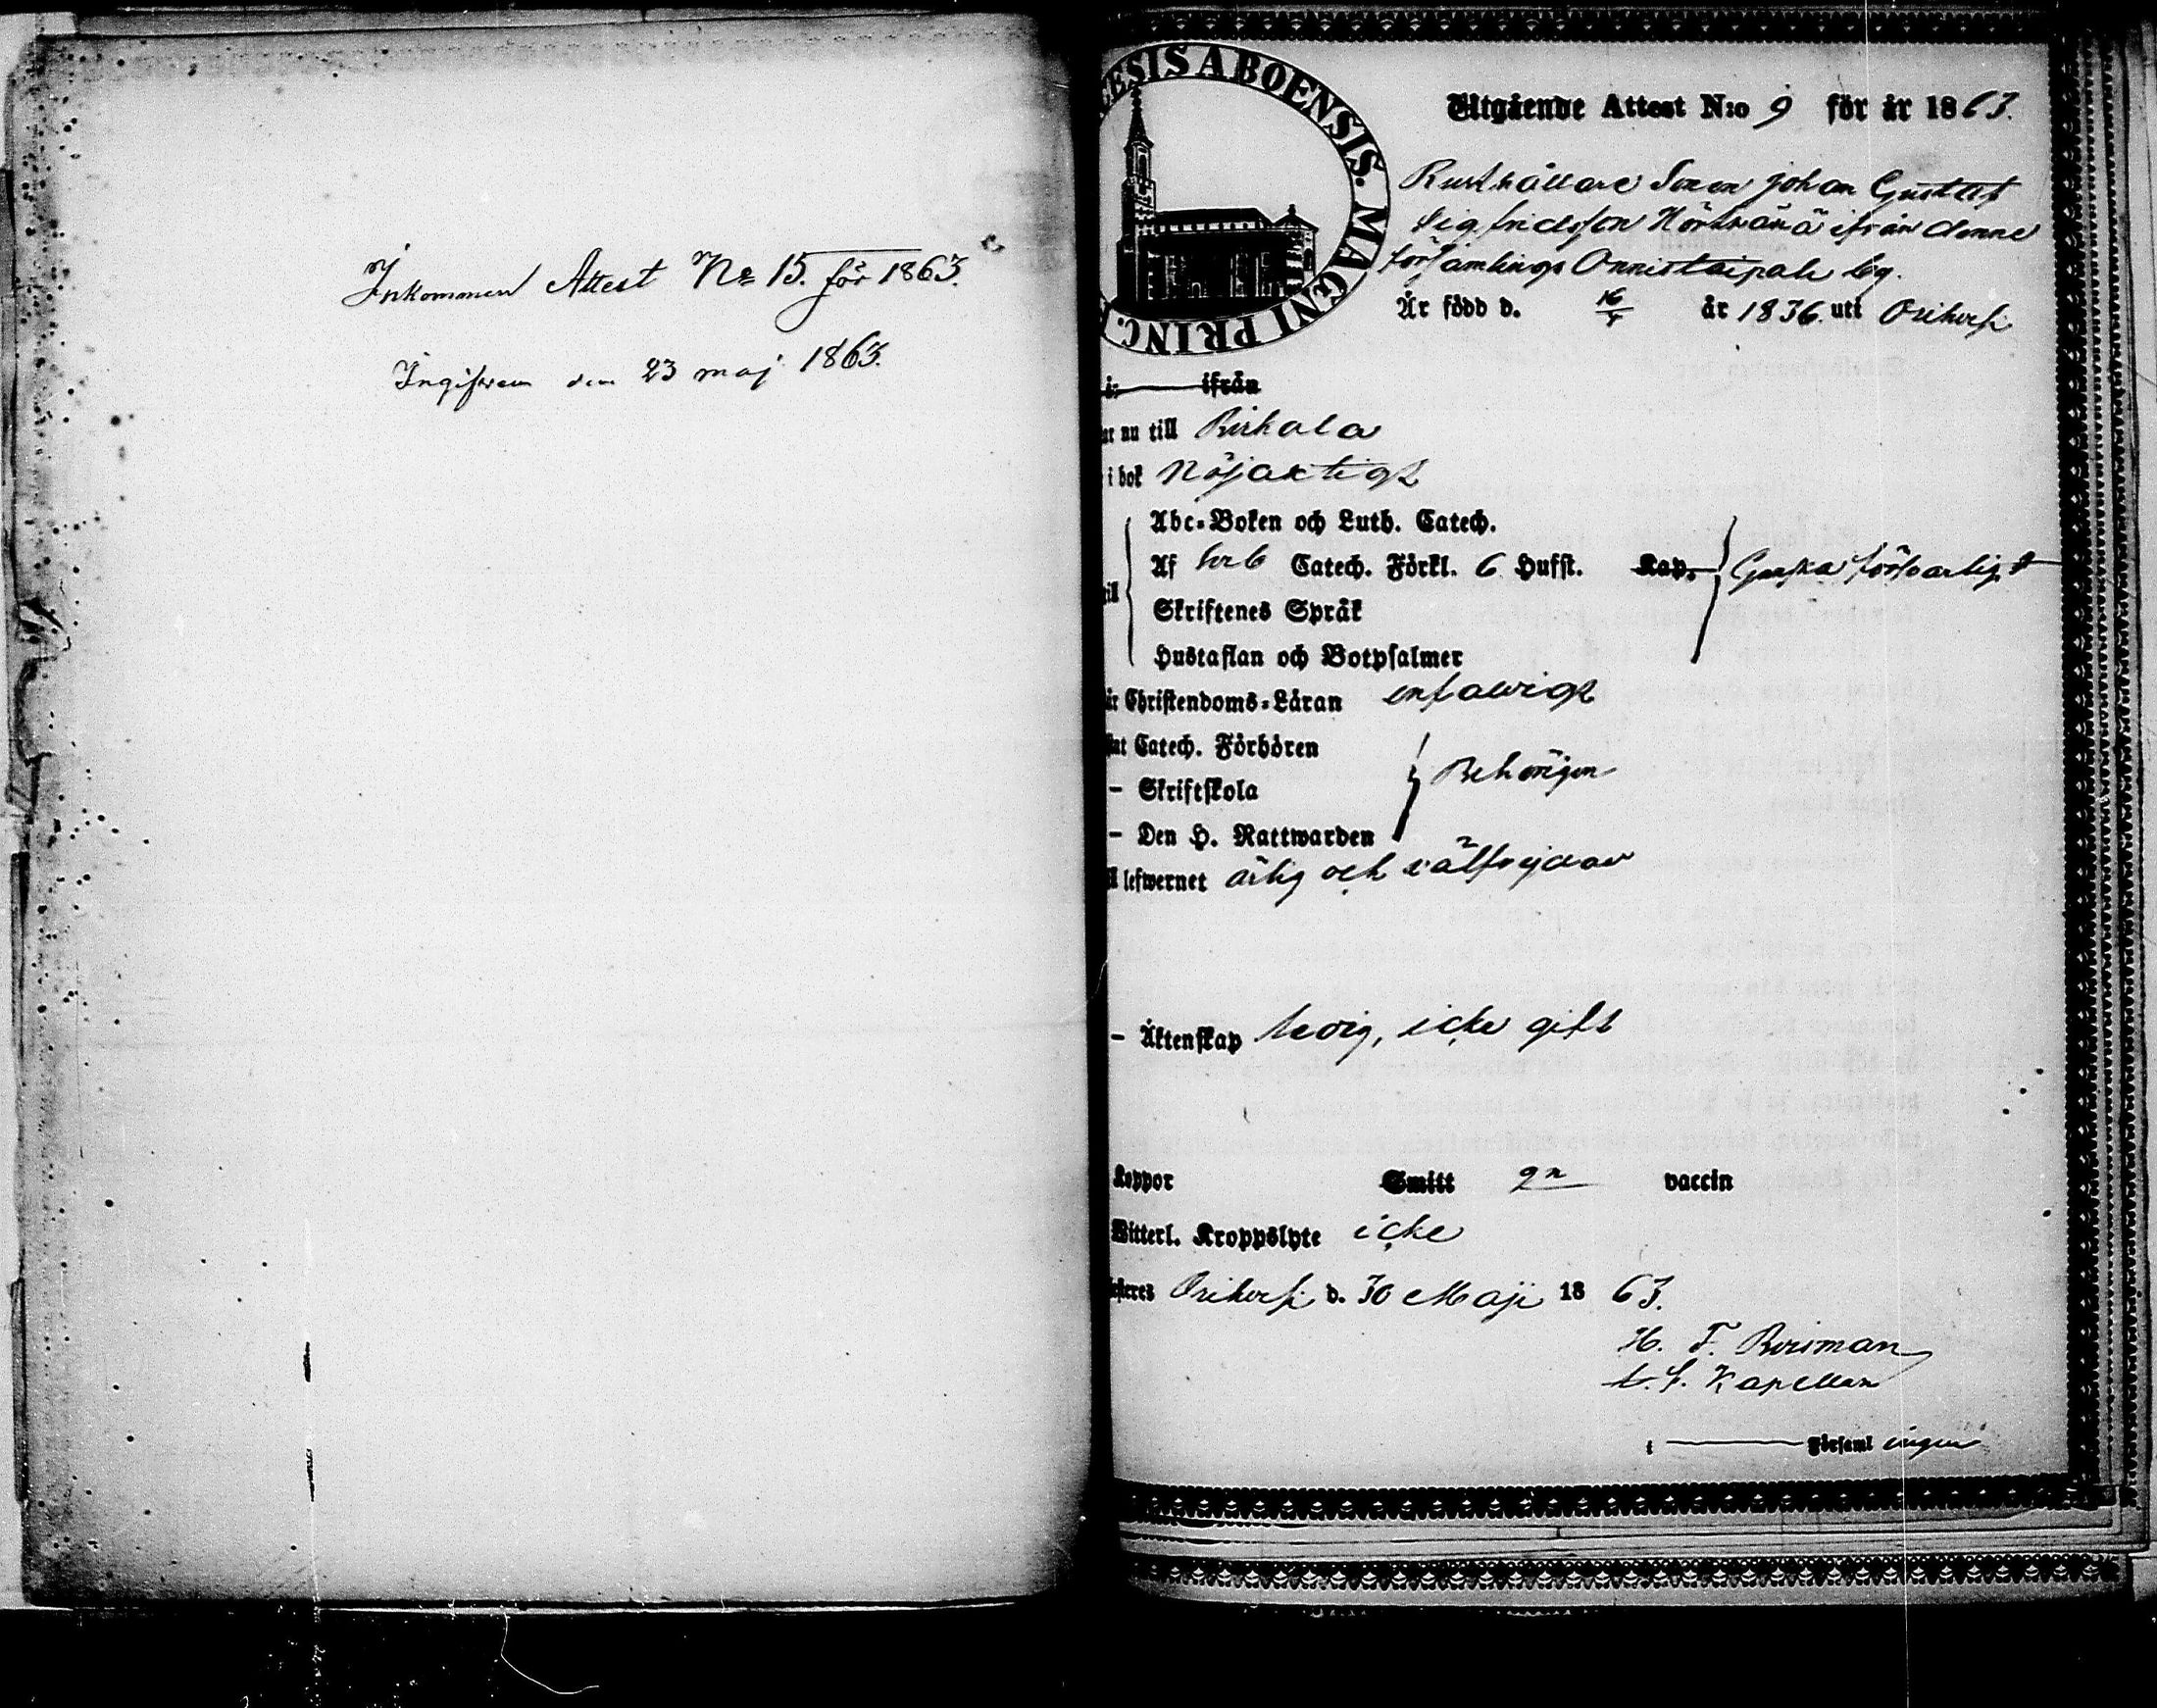 Inkommen Attest No 15. för 1863.
den 23 maj 1863.
ESIS ABOENSIS. MAGNI PRINC.
Utgående Attest N:o 9 för år 1863.
Rusthållare Sonen Johan Gustaf
Sigfridsson ifrån denne
församlings Onnistaipale by.
Är född d. 16/ år 1836. utt Orihvesi
ifrån
nu till Birkala
i bok Nöjaktigt
Abc-Boken och Luth. Catech.
Af Catech. Förkl. 6 Hufst. Kap. Ganska försvarligt
Skriftenes Språk
Hustaflan och Botpsalmer
Christendoms-Läran enfaldigt
Catech. Förhören
– Skriftskola Behörigen
– Den H. Nattwarden
lefwernet ärlig och välfrejdad
– Äktenskap ledig, icke gift
Koppor Smitt gn vaccin
Witterl. Kroppslyte icke
Orihvesi d. 30 Maji 1863.
H. F.
Kapellan
i Församlingen